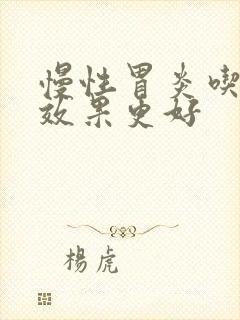 慢性胃炎喫
效果更好
楊虎